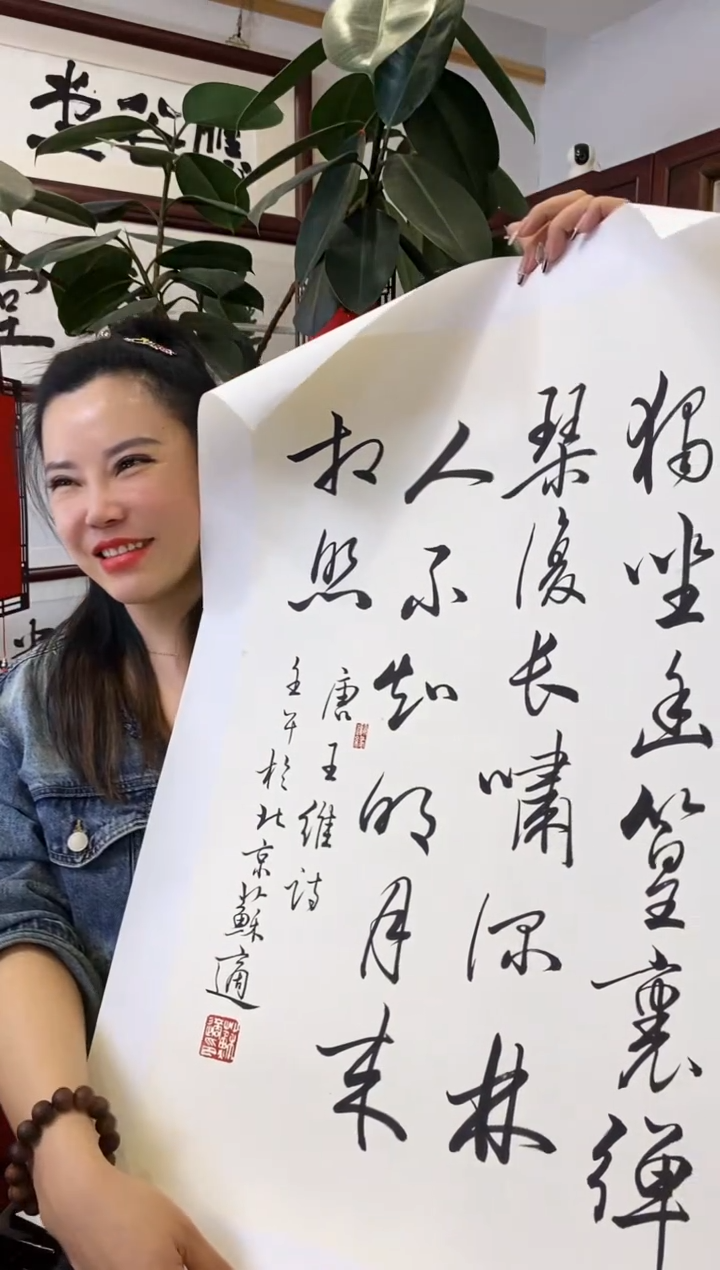 獨坐幽篁裏彈
琴復长嘯深林
人不知明月来
相照
唐王維诗
壬午於北京蘇適